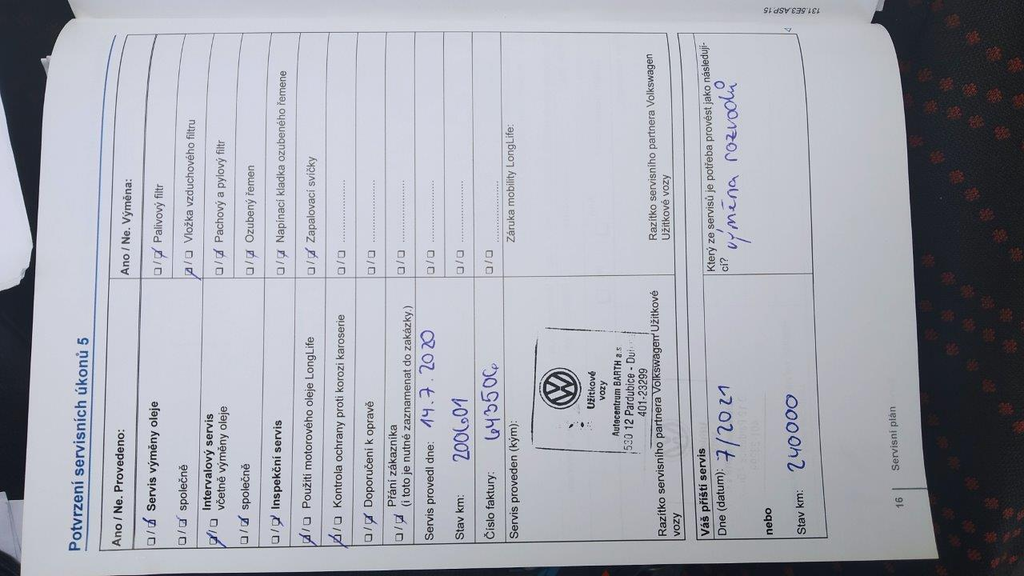 Potvrzení servisních úkonů 5
Ano / Ne. Provedeno:
Servis výměny oleje
společně
Intervalový servis
včetně výměny oleje
společně
Inspekční servis
Použití motorového oleje LongLife
Kontrola ochrany proti korozi karoserie
Doporučení k opravě
Přání zákazníka
(i toto je nutné zaznamenat do zakázky.)
Servis provedl dne: 14.7.2020
Stav km: 200601
Číslo faktury:
Servis proveden (kým):
Užitkové
vozy
Autocentrum BARTH a.s.
530 12 Pardubice -
401-23299
Razítko servisního partnera Volkswagen Užitkové
vozy
Ano / Ne. Výměna:
Palivový filtr
Vložka vzduchového filtru
Pachový a pylový filtr
Ozubený řemen
Napínací kladka ozubeného řemene
Zapalovací svíčky
Záruka mobility LongLife:
Razítko servisního partnera Volkswagen
Užitkové vozy
Váš příští servis
Dne (datum): 7/2021
nebo
Stav km: 240000
Který ze servisů je potřeba provést jako následují-
cí? výměna rozvodů
16
Servisní plán
131.5E3.ASP.15